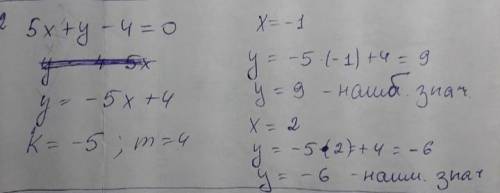 2 5x + y - 4 = 0
y = -5x + 4
k = -5 ; m = 4
x = -1
y = -5 · (-1) + 4 = 9
y = 9 - наиб. знач.
x = 2
y = -5 · (2) + 4 = -6
y = -6 - наим. знач